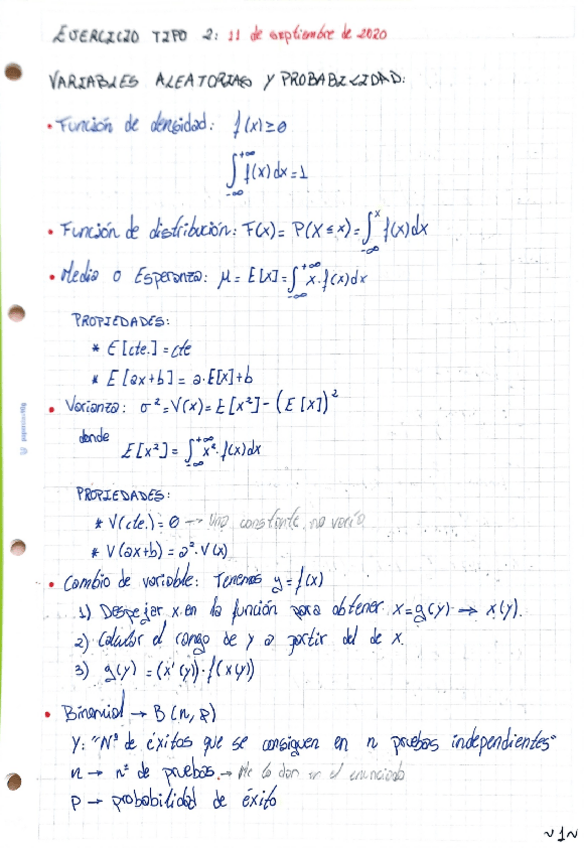 EJERCICIO TIPO 2: 11 de septiembre de 2020
VARIABLES ALEATORIAS Y PROBABILIDAD:
• Función de densidad: f(x) ≥ 0
∫_{-∞}^{+∞} f(x) dx = 1
• Función de distribución: F(x) = P(X ≤ x) = ∫_{-∞}^{x} f(x) dx
• Media o Esperanza: μ = E[x] = ∫_{-∞}^{+∞} x · f(x) dx
PROPIEDADES:
* E[cte.] = cte
* E[ax+b] = a·E[x]+b
• Varianza: σ² = V(x) = E[x²] - (E[x])²
donde
E[x²] = ∫_{-∞}^{+∞} x² · f(x) dx
PROPIEDADES:
* V(cte.) = 0 → Una constante no varía
* V(ax+b) = a²·V(x)
• Cambio de variable: Tenemos y = f(x)
1) Despejar x en la función para obtener x = g(y) → x(y).
2) Calcular el rango de y a partir del de x.
3) g(y) = (x'(y)) · f(x(y))
• Binomial → B(n, p)
Y: "Nº de éxitos que se consiguen en n pruebas independientes"
n → nº de pruebas. → Me lo dan en el enunciado
p → probabilidad de éxito
~1~